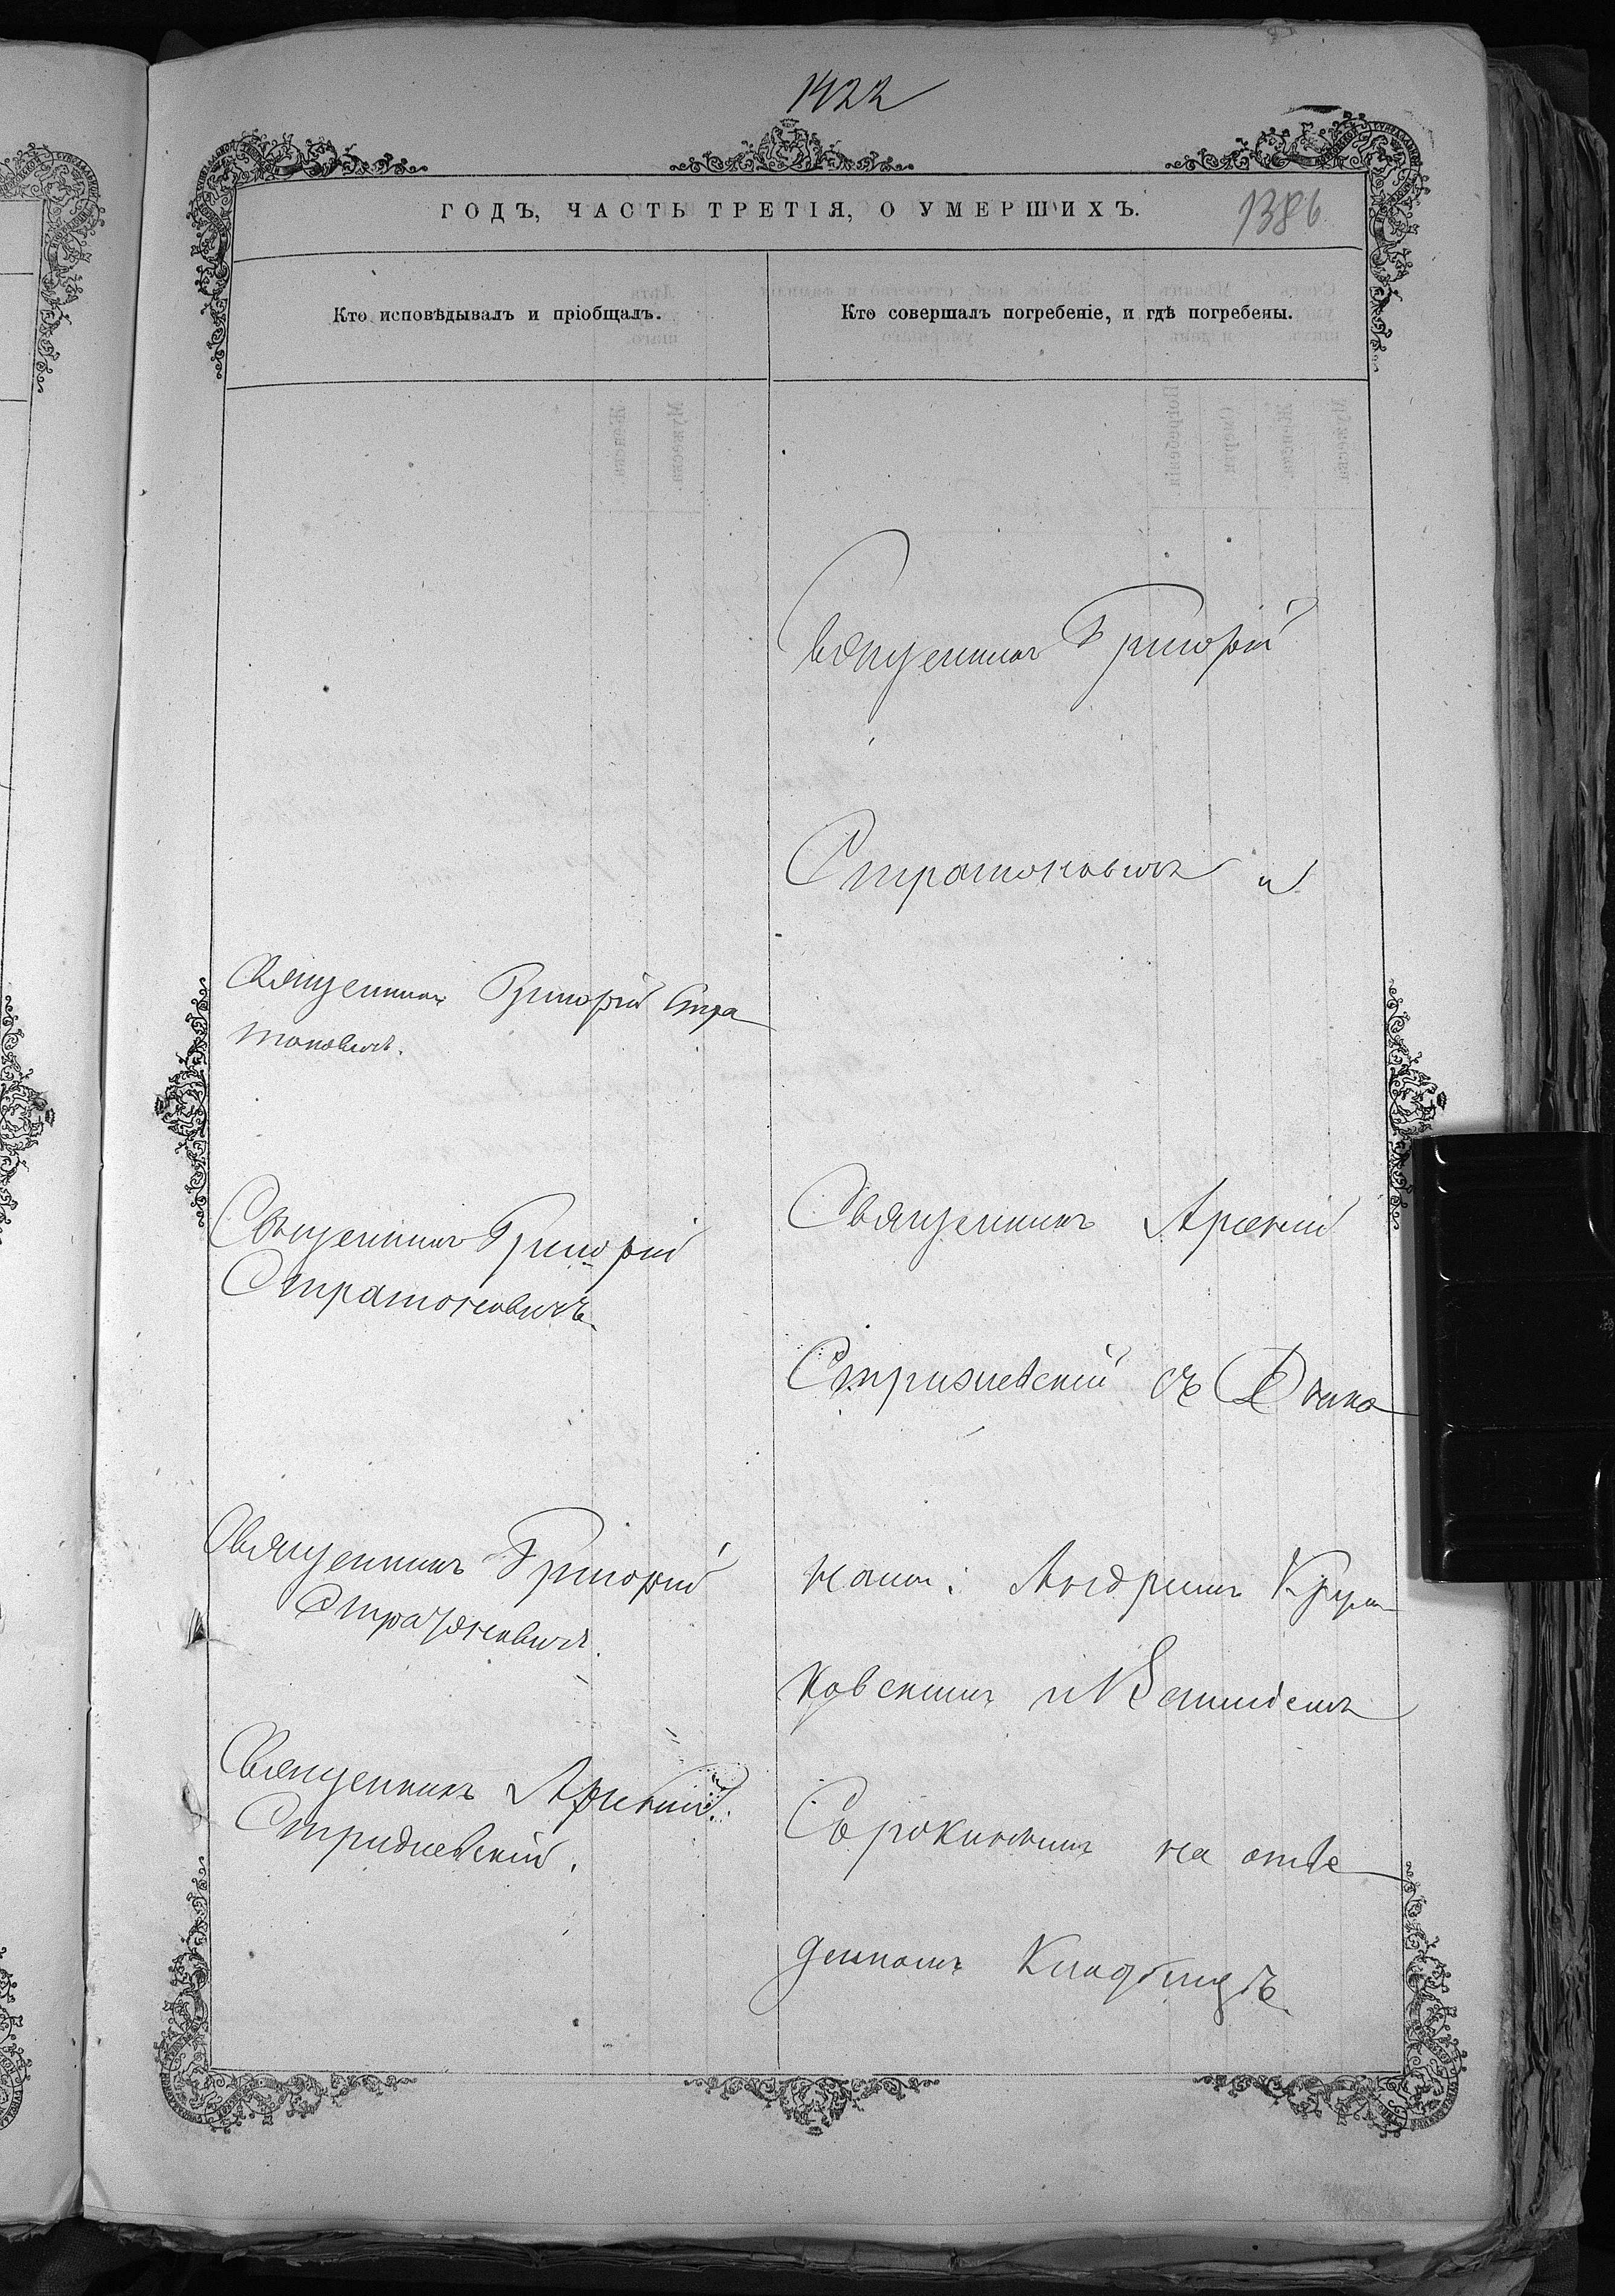 1422
ГОДЪ, ЧАСТЬ ТРЕТІЯ, О УМЕРШИХЪ.
1386
Кто исповѣдывалъ и пріобщалъ.
Священникъ Григорій Стра
тоновичъ.
Священникъ Григорій
Стратоновичъ.
Священникъ Григорій
Стратоновичъ.
Священникъ Арсеній
Стридневскій.
Кто совершалъ погребеніе, и гдѣ погребены.
Священникъ Григорій
Стратоновичъ и
Священникъ Арсеній
съ Дьячка
нами: Андреемъ
ковскимъ и
Сорокинымъ на отве
денномъ Кладбищѣ.